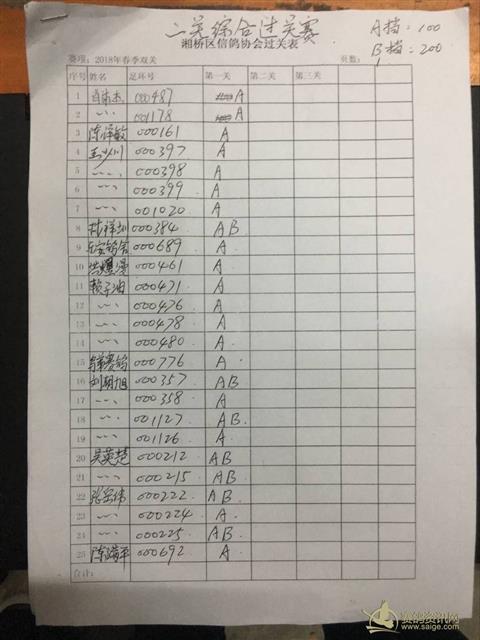 二关综合过关赛
A档:100
湘桥区信鸽协会过关表
B档:200
赛项:2018年春季双关 页数:
序号 姓名 足环号 第一关 第二关 第三关
1 000487 A
2 〃 001178 A
3 000161 A
4 000397 A
5 〃 000398 A
6 〃 000399 A
7 〃 001020 A
8 000384 AB
9 000689 A
10 000461 A
11 000471 A
12 〃 000476 A
13 〃 000478 A
14 〃 000480 A
15 000776 A
16 刘朝旭 000357 AB
17 〃 000358 A
18 〃 001127 AB
19 〃 001126 A
20 吴英楚 000212 AB
21 〃 000215 AB
22 000222 AB
23 〃 000224 A
24 〃 000225 AB
25 000692 A
合计:
赛鸽资讯网
www.saige.com